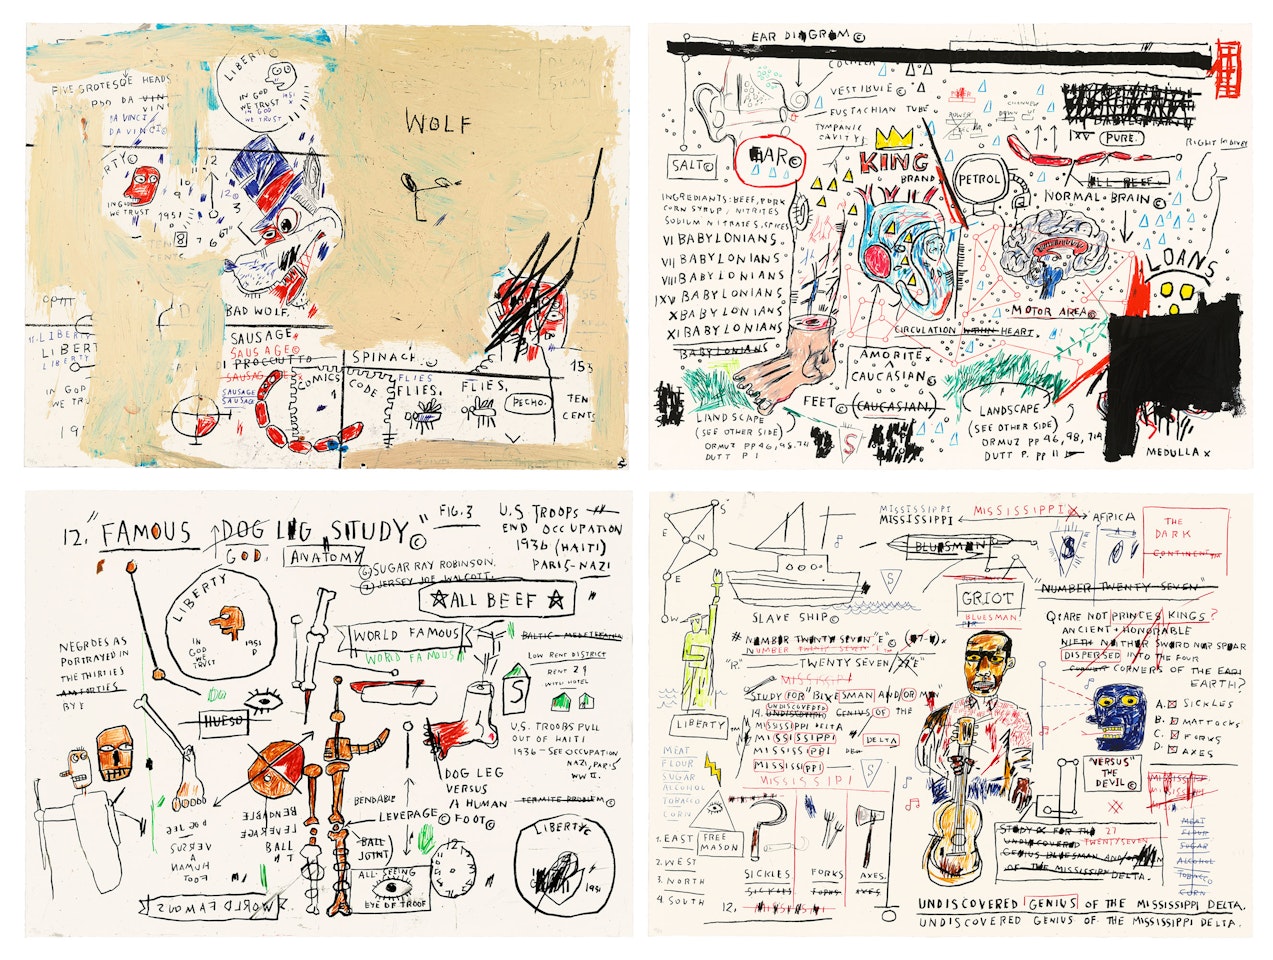 FIVE GROTESQUE HEADS
DA VINCI
DA VINCI©
LIBERTY
IN GOD
WE TRUST
IN GOD
WE TRUST
1951
RTY©
IN GOD
WE TRUST
1951
12
3
10
9
8
7
6
TEN
CENTS
WOLF
BAD WOLF.
LIBERTY
LIBERT
LIBERTY
IN GOD
WE TR
SAUSAGE
SAUSAGE©
PROCCUTTO
SAUSAGE
SAUSAGE
COMICS
CODE
SPINACH
FLIES
FLIES,
FLIES.
FLIES,
PECHO.
153
TEN
CENTS
EAR DIAGRAM©
COCHLEA
VESTIBULE©
EUSTACHIAN TUBE
TYMPANIC
CAVITY
SALT©
EAR©
KING
BRAND
PETROL
XV PURE.
ALL BEEF
NORMAL BRAIN©
INGREDIANTS: BEEF, PORK
CORN SYRUP, NITRITES
SODIUM NITRATES, SPICES
VI BABYLONIANS.
VII BABYLONIANS
VIII BABYLONIANS
IXV BABYLONIANS
XI BABYLONIANS
BABYLONIANS
LOANS
MOTOR AREA©
CIRCULATION WITHIN HEART.
AMORITE
CAUCASIAN©
CAUCASIAN.
FEET©
LANDSCAPE
(SEE OTHER SIDE)
ORMUZ PP 46, 98, 71
DUTT P 1
S
LANDSCAPE
(SEE OTHER SIDE)
ORMUZ PP 46, 98, 71A
DUTT P. PP 11
MEDULLA X
12. "FAMOUS DOG LEG STUDY"©
FIG. 3
GOD.
ANATOMY
U.S TROOPS
END OCCUPATION
1936 (HAITI)
PARIS-NAZI
6 SUGAR RAY ROBINSON.
7 JERSEY JOE WALCOTT.
ALL BEEF
LIBERTY
IN
GOD
WE
TRUST
1951
D
WORLD FAMOUS
WORLD FAMOUS
BALTIC - MEDETERANIAN
LOW RENT DISTRICT
RENT 2$
WITH HOTEL
S
NEGROES AS
PORTRAYED IN
THE THIRTIES
AN FORTIES
BY Y
HUESO
U.S. TROOPS PULL
OUT OF HAITI
1936 - SEE OCCUPATION
NAZI, PARIS
WW II.
DOG LEG
VERSUS
A HUMAN
FOOT©
TERMITE PROBLEM©
BENDABLE
LEVERAGE
BALL
JOINT
ALL-SEEING
EYE OF TROOF
DOG LEG
VERSUS
HUMAN
FOOT
BENDABLE
LEVERAGE
BALL
WORLD FAMOUS
12
LIBERTY
1951
N
S
E
E
W
SLAVE SHIP©
MISSISSIPPI
MISSISSIPPI
MISSISSIPPI
AFRICA
THE
DARK
CONTINENT™
BLUESMEN
S
GRIOT
BLUESMAN
"NUMBER TWENTY SEVEN"
# NUMBER TWENTY SEVEN "E"
NUMBER TWENTY SEVEN
"R."
TWENTY SEVEN "E"
MISSISSIPPI
STUDY FOR "BLUESMAN AND/OR MEN"
14. UNDISCOVERED GENIUS OF THE
MISSISSIPPI DELTA
MISSISSIPPI
MISSISSIPPI
MISSISSIPPI
MISSISSIPPI
DELTA
Q: ARE NOT PRINCES KINGS?
ANCIENT + HONORABLE
NIETH NEITHER SWORD NOR SPEAR
DISPERSED INTO THE FOUR
CORNERS OF THE EARTH
EARTH?
A. SICKLES
B. MATTOCKS
C. FORKS
D. AXES
"VERSUS"
THE
DEVIL©
LIBERTY
TM
MEAT
FLOUR
SUGAR
ALCOHOL
TOBACCO
CORN
S
1. EAST
2. WEST
3. NORTH
4. SOUTH
FREE
MASON
SICKLES
SICKLES
FORKS
FORKS
AXES.
AXES
12. MISSISSIPPI
MISSISSIPPI
MEAT
FLOUR
SUGAR
ALCOHOL
TOBACCO
CORN
STUDY OF THE 27
UNDISCOVERED TWENTYSEVEN
GENIUS BLUESMAN AND/OR MEN
OF THE MISSISSIPPI DELTA.
UNDISCOVERED GENIUS OF THE MISSISSIPPI DELTA.
UNDISCOVERED GENIUS OF THE MISSISSIPPI DELTA.